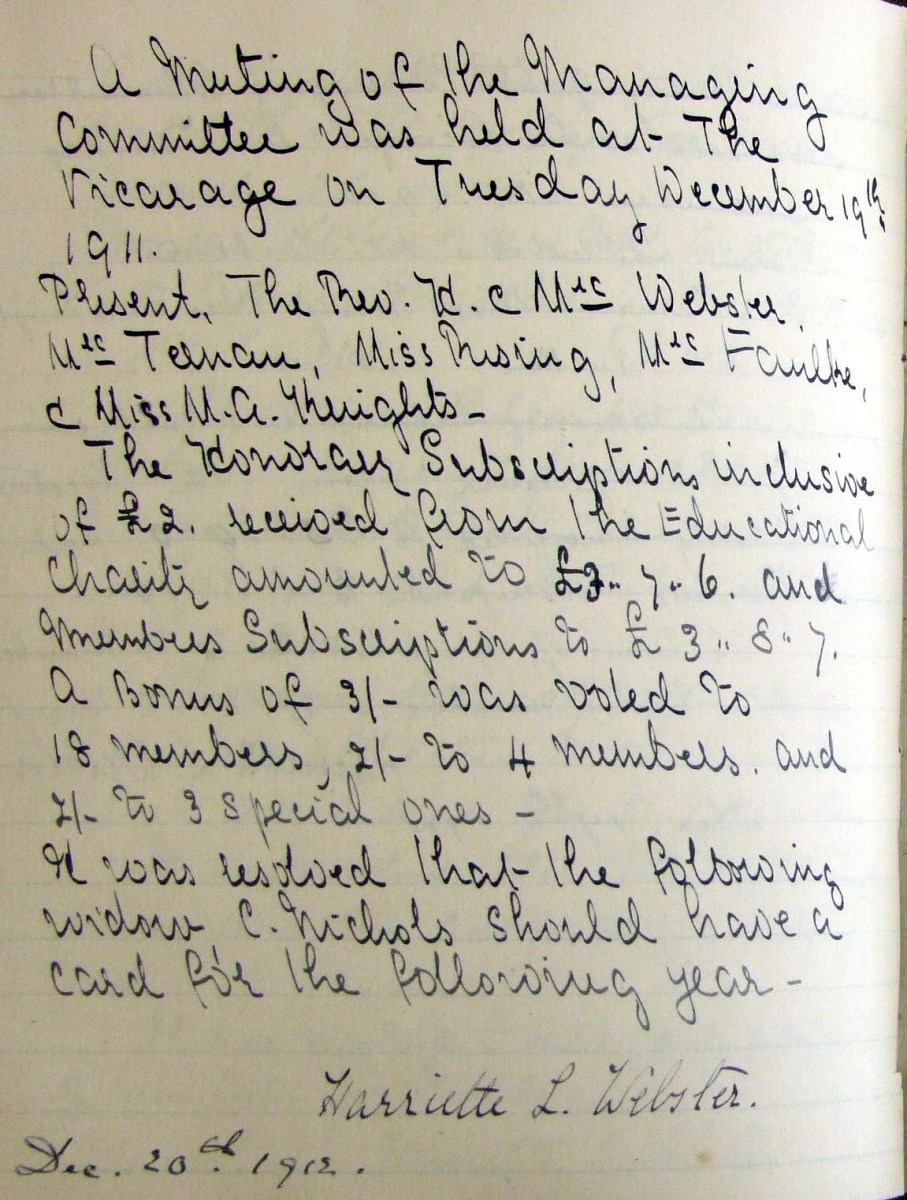 A Meeting of the Managing
Committee was held at The
Vicarage on Tuesday December 19th
1911.
Present, The Rev. H. & Mrs Webster,
Mrs Tenau, Miss Rising, Mrs Faulke,
& Miss M.A. Knights -
The Honorary Subscriptions inclusive
of £2. received from the Educational
Charity amounted to £7 " 7 " 6. and
Members Subscriptions to £3 " 8 " 7.
A Bonus of 3/- was voted to
18 members, 2/- to 4 members. and
2/- to 3 special ones -
It was resolved that the following
widow, C. Nichols should have a
card for the following year -
Harriette L. Webster.
Dec. 20th. 1912.